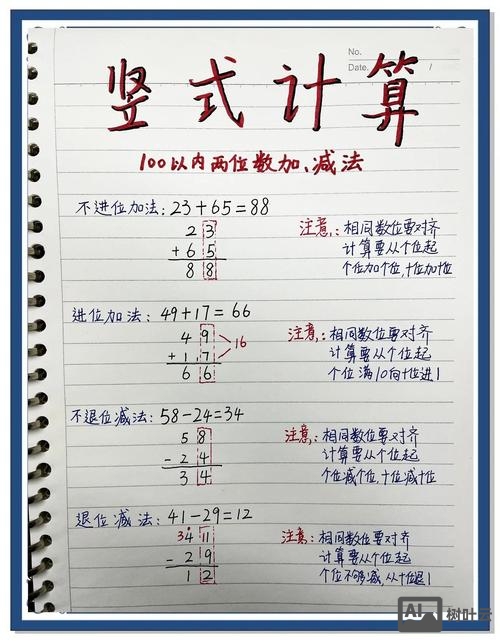 No.
Date. /
竖式计算
100以内两位数加、减法
不进位加法: 23+65=88
2 3
+ 6 5
8 8
注意: 相同数位要对齐
计算要从个位起
个位加个位, 十位加十位
进位加法: 49+17=66
4 9
+ 1 7
6 6
16
注意: 相同数位要对齐
计算要从个位起
个位满10向十位进1
不退位减法: 58-24=34
5 8
- 2 4
3 4
注意: 相同数位要对齐
计算要从个位起
个位减个位, 十位减十位
退位减法: 41-29=12
3 4 11
- 2 9
1 2
注意: 相同数位要对齐
计算要从个位起
个位不够减, 从十位退1
AI 树叶云